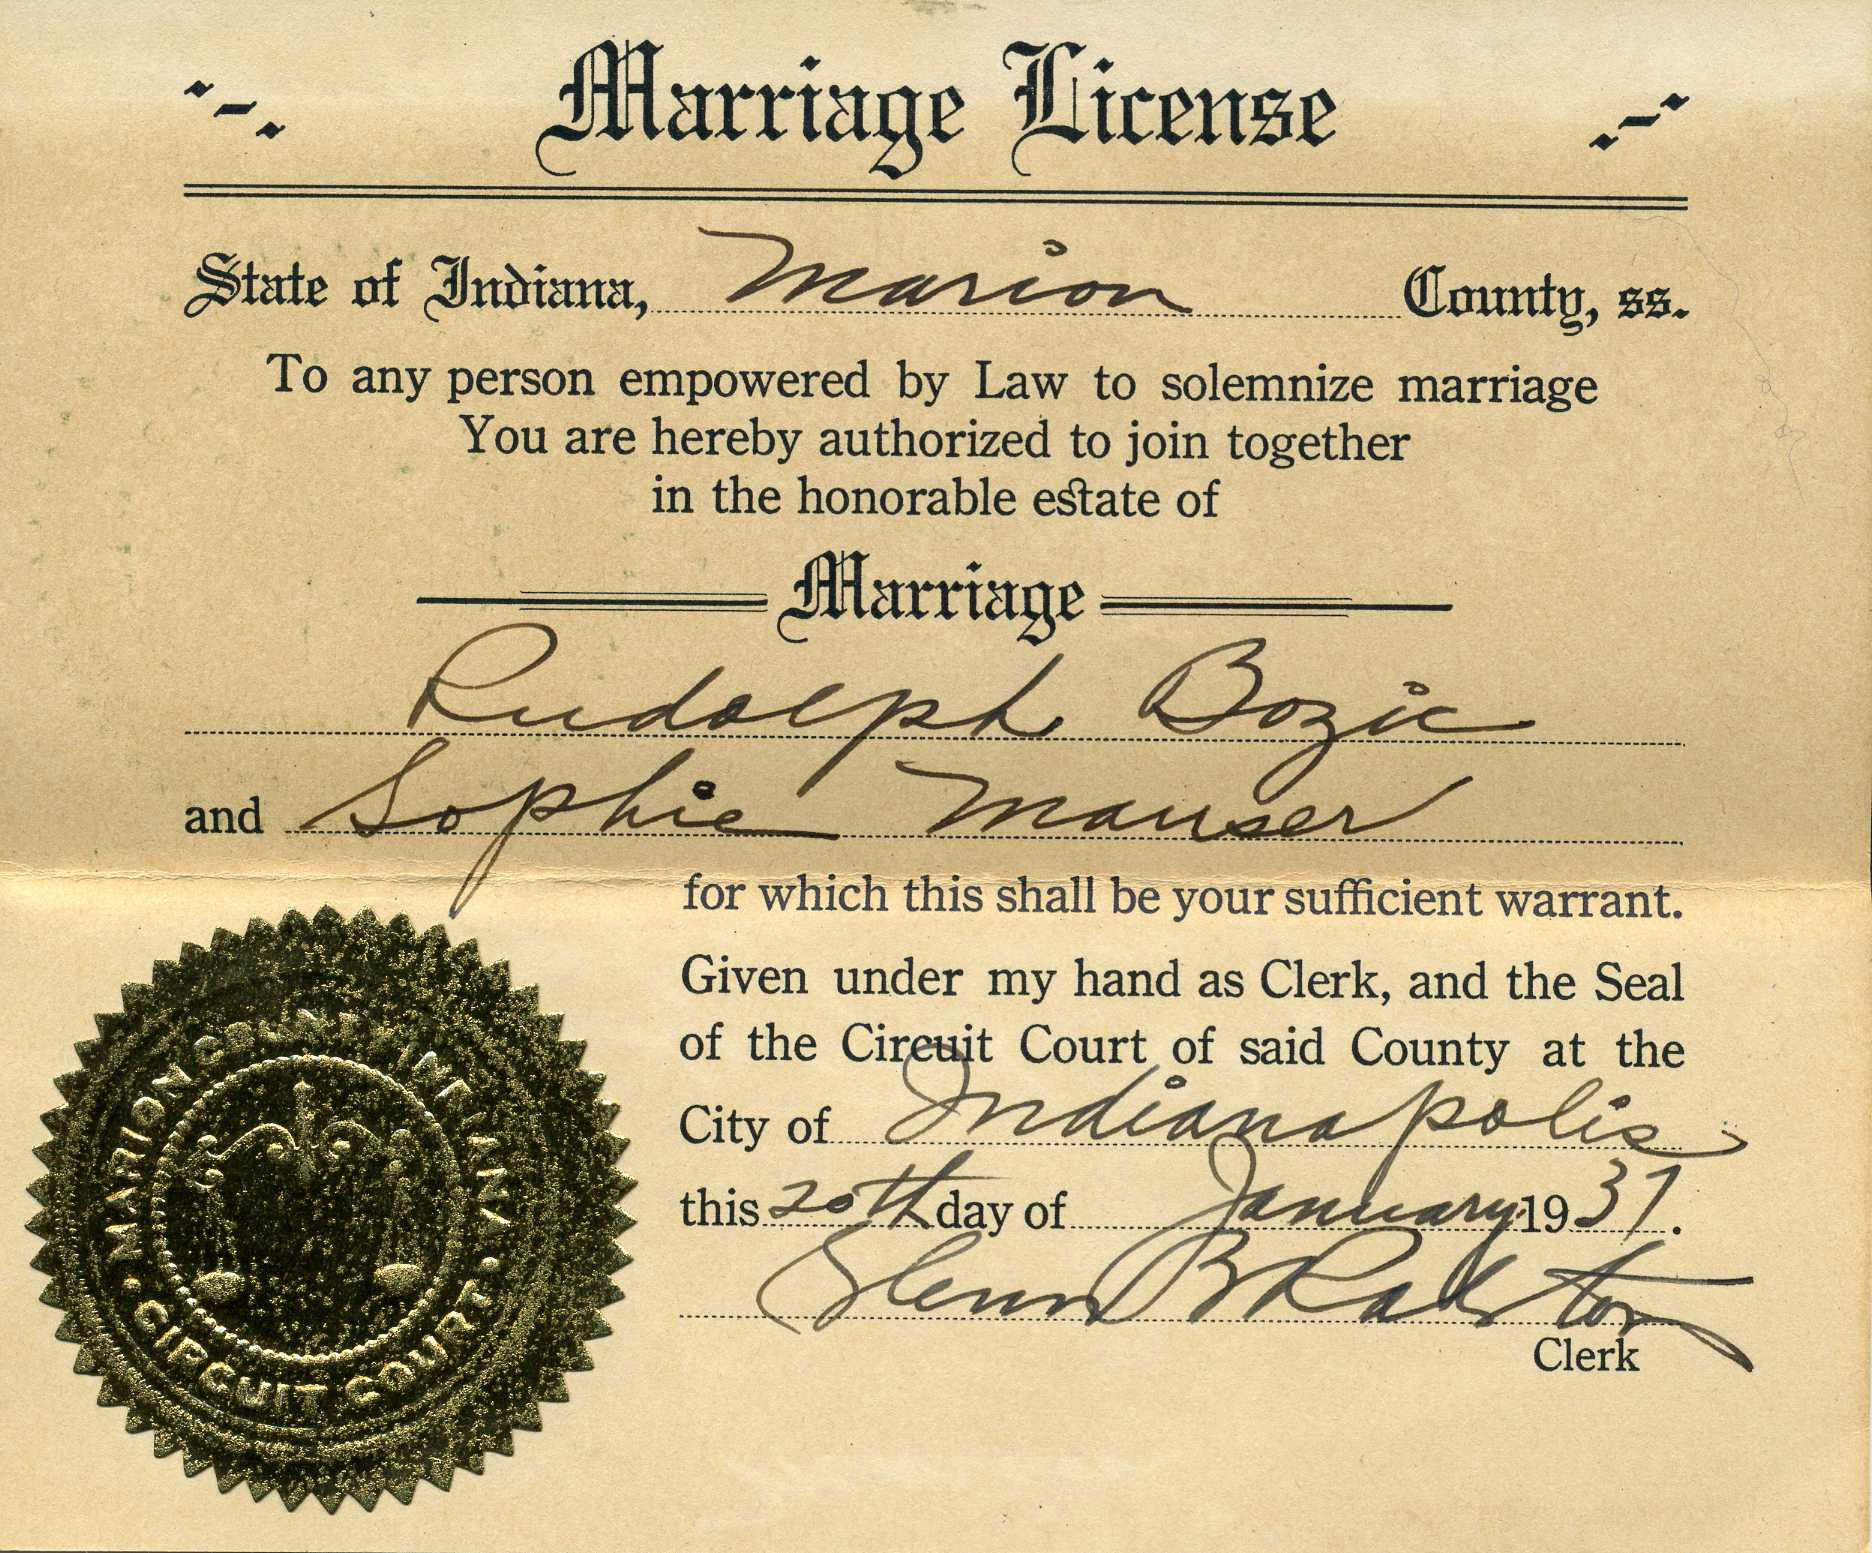 Marriage License
State of Indiana, Marion County, ss.
To any person empowered by Law to solemnize marriage
You are hereby authorized to join together
in the honorable estate of
Marriage
Rudolph Bozic
and Sophie Mauser
for which this shall be your sufficient warrant.
Given under my hand as Clerk, and the Seal
of the Circuit Court of said County at the
City of Indianapolis
this 20th day of January 1937.
Glenn B Ralston
Clerk
MARION COUNTY, INDIANA
CIRCUIT COURT